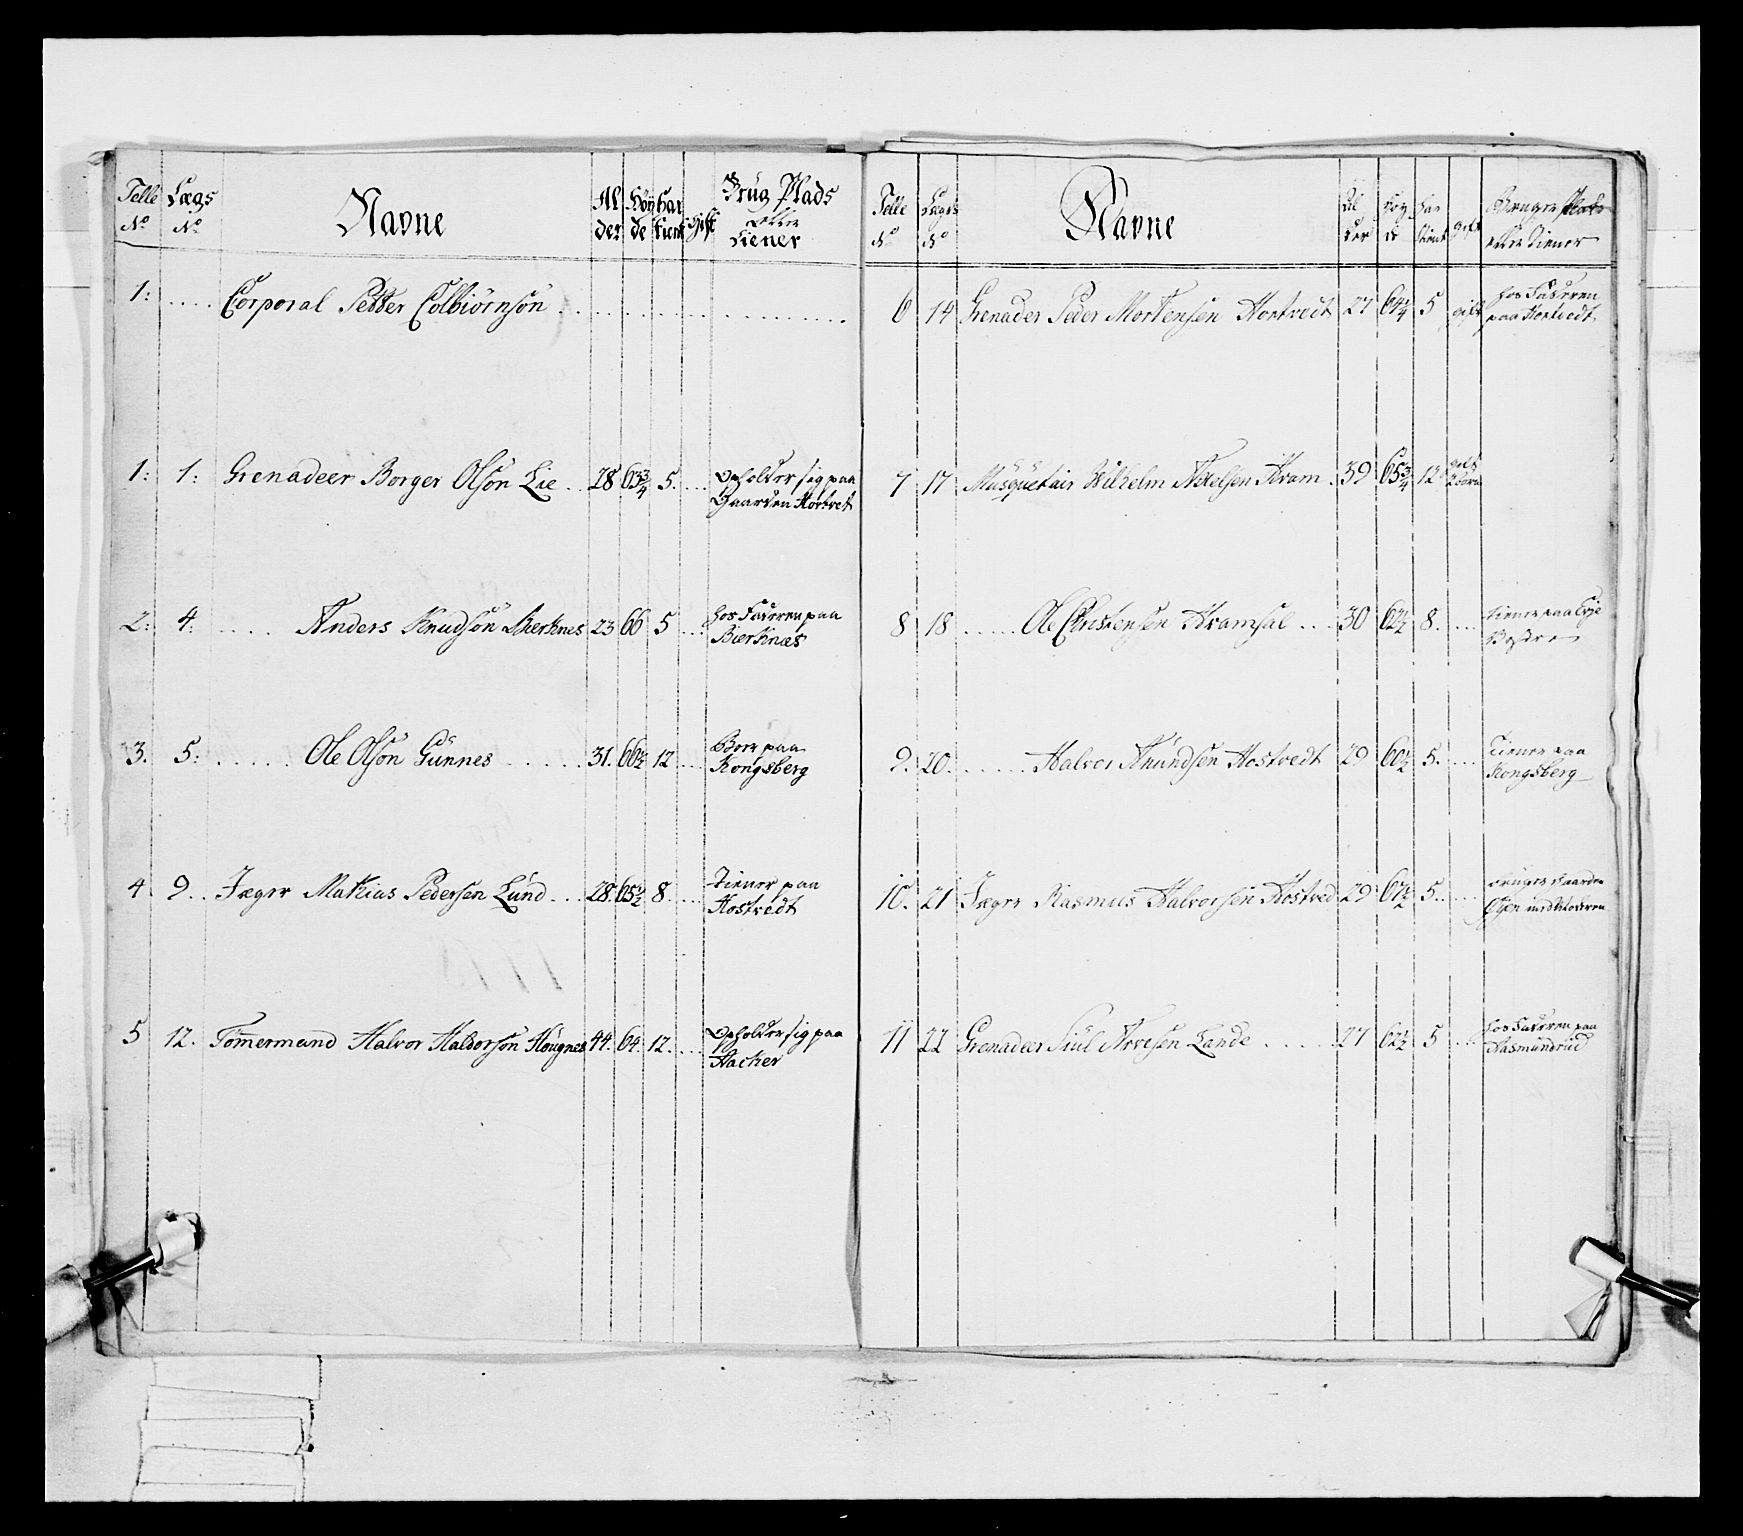 Telle No Lægs No Navne Al der Höy de Har tient Gift Brug Plads eller tiener
1: .... Corporal Petter Colbiörnsön ....
1: 1: Grenadeer Borger Olsön Lie .. 28. 63 3/4 5. ... opholder sig paa
Gaarden Hortvet
2: 4: .... Anders Knudsön Bierknes 23 66 5 ... hos Faderen paa
Bierknæs
3. 5: ..... Ole Olsön Gunnes ..... 31. 66 1/2 12 ... Boer paa
Kongsberg
4. 9.. Jæger Mathias Pedersen Lund ... 28. 65 1/2 8. ... tiener paa
Hostvedt
5 12. Tömermand Halvor Haldorsön Hougnes 44. 64. 12. ... opholder sig paa
Aacker
Telle No Lægs No Navne Al der Höy de Har tient gift Bruger Plads eller tiener
6 14 Grenader Peder Mortensen Hortvedt 27 64 1/4 5 gift hos Faderen
paa Hortvedt
7 17 Musquetair Wilhelm Axelsen Kram . 39 65 3/4 12 gift
2 børn
8 18 ..... Ole Christensen Kramsal ... 30 62 1/2 8. ... tiener paa
9. 20. ..... Halvor Amundsen Hostvedt 29 60 1/2 5. ... Tiener paa
Kongsberg
10. 21 Jæger Rasmus Halvorsen Hostved 29 67 1/2 5. ... bruger Gaarden
med Moderen
11 22 Grenadeer Siul Arvesen Lande ..... 27 62 1/2 5 ... hos Faderen paa
Aasmundrud